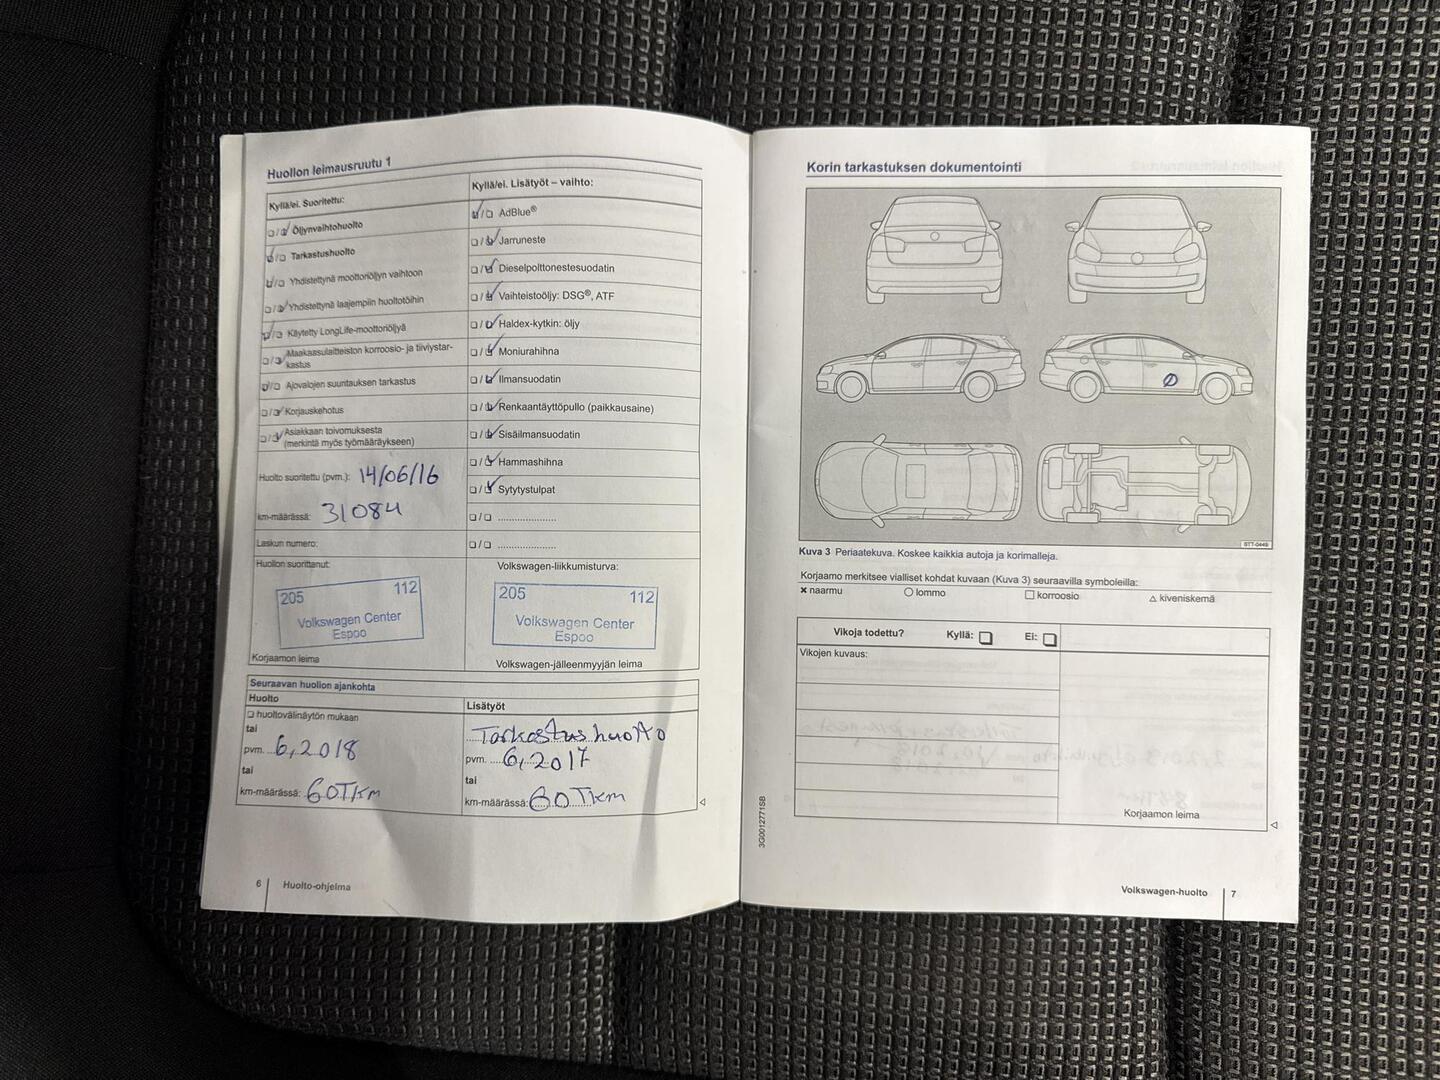 Huollon leimausruutu 1
Kyllä/ei. Suoritettu:
Öljynvaihtohuolto
Tarkastushuolto
Yhdistettynä moottoriöljyn vaihtoon
Yhdistettynä laajempiin huoltotöihin
Käytetty LongLife-moottoriöljyä
Maakaasulaitteiston korroosio- ja tiiviystar-
kastus
Ajovalojen suuntauksen tarkastus
Korjauskehotus
Asiakkaan toivomuksesta
(merkintä myös työmääräykseen)
Huolto suoritettu (pvm.): 14/06/16
km-määrässä: 31084
Laskun numero:
Huollon suorittanut:
205 112
Volkswagen Center
Espoo
Korjaamon leima
Kyllä/ei. Lisätyöt – vaihto:
AdBlue®
Jarruneste
Dieselpolttonestesuodatin
Vaihteistoöljy: DSG®, ATF
Haldex-kytkin: öljy
Moniurahihna
Ilmansuodatin
Renkaantäyttöpullo (paikkausaine)
Sisäilmansuodatin
Hammashihna
Sytytystulpat
Volkswagen-liikkumisturva:
205 112
Volkswagen Center
Espoo
Volkswagen-jälleenmyyjän leima
Seuraavan huollon ajankohta
Huolto
huoltovälinäytön mukaan
tai
pvm. 6,2018
tai
km-määrässä: 60Tkm
Lisätyöt
Tarkastus huolto
pvm. 6,2017
tai
km-määrässä: 60Tkm
6 Huolto-ohjelma
Korin tarkastuksen dokumentointi
STT-0449
Kuva 3 Periaatekuva. Koskee kaikkia autoja ja korimalleja.
Korjaamo merkitsee vialliset kohdat kuvaan (Kuva 3) seuraavilla symboleilla:
× naarmu ○ lommo □ korroosio △ kiveniskemä
Vikoja todettu? Kyllä: Ei:
Vikojen kuvaus:
Korjaamon leima
3G0012771SB
Volkswagen-huolto 7